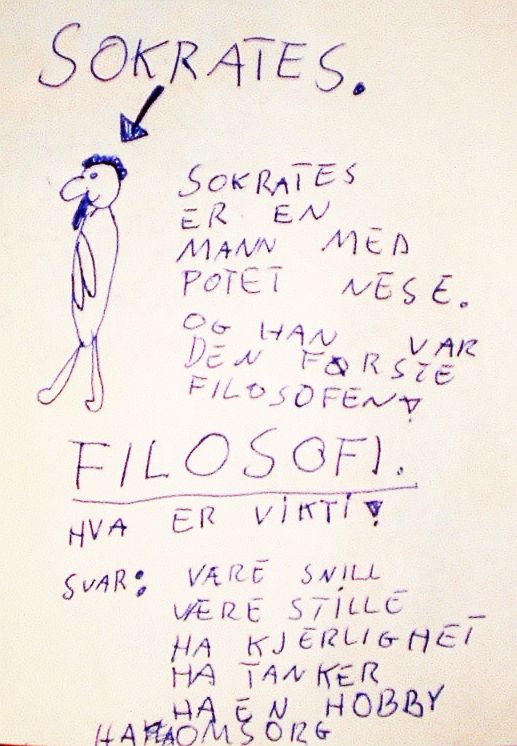 SOKRATES.
SOKRATES
ER EN
MANN MED
POTET NESE.
OG HAN VAR
DEN FØRSTE
FILOSOFEN!
FILOSOFI.
HVA ER VIKTI!
SVAR: VÆRE SNILL
VÆRE STILLE
HA KJERLIGHET
HA TANKER
HA EN HOBBY
HA OMSORG